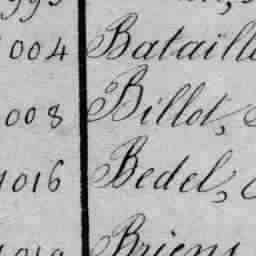 1004 Bataill
1008 Billot,
1016 Bedel,
Briens